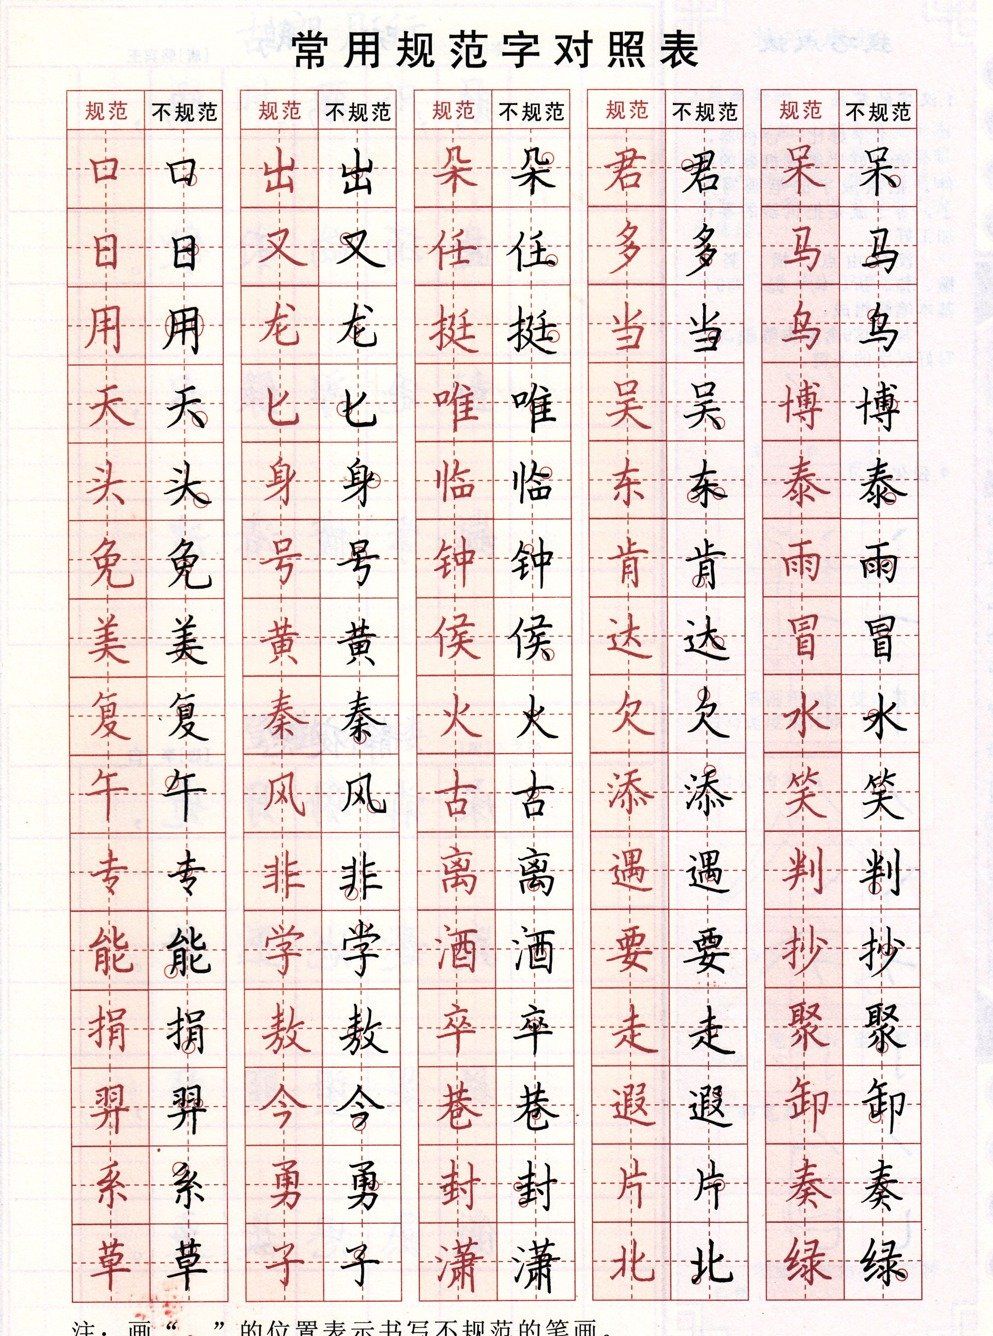 常用规范字对照表
规范 不规范 规范 不规范 规范 不规范 规范 不规范 规范 不规范
口 口 出 出 朵 朵 君 君 呆 呆
日 日 又 又 任 任 多 多 马 马
用 用 龙 龙 挺 挺 当 当 鸟 鸟
天 天 匕 匕 唯 唯 吴 吴 博 博
头 头 身 身 临 临 东 东 泰 泰
免 免 号 号 钟 钟 肯 肯 雨 雨
美 美 黄 黄 侯 侯 达 达 冒 冒
复 复 秦 秦 火 火 欠 欠 水 水
午 午 风 风 古 古 添 添 笑 笑
专 专 非 非 离 离 遇 遇 判 判
能 能 学 学 酒 酒 要 要 抄 抄
捐 捐 敖 敖 卒 卒 走 走 聚 聚
羿 羿 今 今 巷 巷 遐 遐 卸 卸
系 系 勇 勇 封 封 片 片 奏 奏
草 草 子 子 潇 潇 北 北 绿 绿
注：画“。”的位置表示书写不规范的笔画。